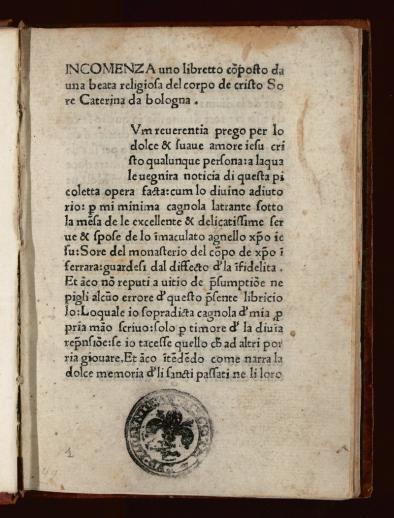 INCOMENZA uno libretto cõposto da
una beata religiosa del corpo de cristo So
re Caterina da bologna .
Vm reuerentia prego per lo
dolce & suaue amore iesu cri
sto qualunque persona: a laqua
le uegnira noticia di questa pi
coletta opera facta: cum lo diuino adiuto
rio: ꝑ mi minima cagnola latrante sotto
la mẽsa de le excellente & delicatissime ser
ue & spose de lo ĩmaculato agnello xp̃o ie
su: Sore del monasterio del cõpo de xp̃o ĩ
ferrara: guardesi dal diffecto d'la ĩfidelita .
Et ãco nõ reputi a uitio de p̃sumptiõe ne
pigli alcũo errore d'questo p̃sente libricio
lo: Loquale io sopradicta cagnola d'mia ,ꝓ
pria mão scriuo: solo ꝑ timore d'la diuia
rep̃nsiõe: se io tacesse quello ch̃ ad altri por
ria giouare. Et ãco itẽdẽdo come narra la
dolce memoria d'li sancti passati ne li loro
1